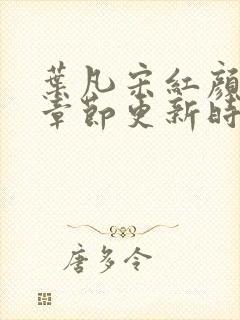 葉凡宋紅顏
章節更新時
唐多令